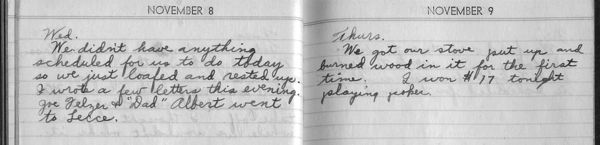 NOVEMBER 8
Wed.
We didn't have anything
scheduled for us to do today
so we just loafed and rested up.
I wrote a few letters this evening.
Joe Felzer + "Dad" Albert went
to Lecce.
NOVEMBER 9
Thurs.
We got our stove put up and
burned wood in it for the first
time. I won $17 tonight
playing poker.